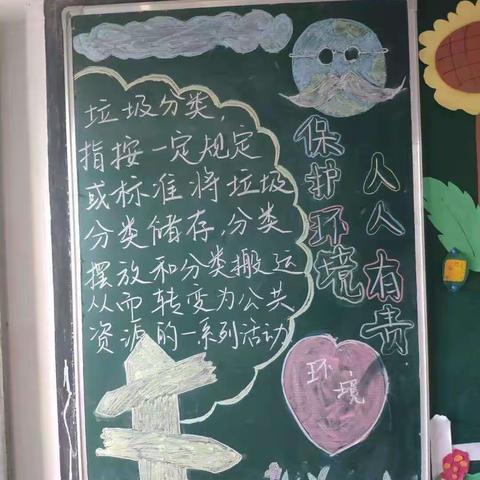 垃圾分类,
指按一定规定
或标准将垃圾
分类储存,分类
摆放和分类搬运
从而转变为公共
资源的一系列活动
保护环境
人人有责
环境